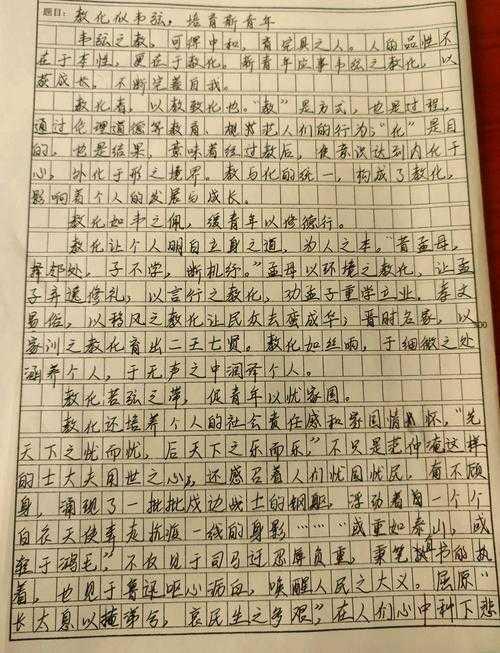 题目：教化似韦弦，培育新青年
韦弦之教，可得中和，育完具之人。人的品性不
在于本性，更在于教化。新青年应事韦弦之教化，以
获成长，不断完善自我。
教化者，以教致化也。"教"是方式，也是过程，
通过伦理道德等教育、规范人们的行为；"化"是目
的，也是结果，意味着经过教后，使意识达到内化于
心，外化于形之境界。教与化的统一，构成了教化，
影响着个人的发展与成长。
教化如韦之佩，缓青年以修德行。
教化让个人明白立身之道，为人之本。"昔孟母，
择邻处，子不学，断机杼。"孟母以环境之教化，让孟
子弃逸修礼；以言行之教化，劝孟子重学立业。孝文
易俗，以移风之教化让民众去蛮成华；晋时名家，以
家训之教化育出二王七贤。教化如丝响，于细微之处
涵养个人，于无声之中润泽个人。
教化若弦之带，促青年以忧家国。
教化还培养个人的社会责任感和家国情怀，"先
天下之忧而忧，后天下之乐而乐，"不只是范仲淹这样
的士大夫用世之心，还感召着人们忧国忧民，奋不顾
身，涌现了一批批戍边战士的钢躯，浮动着一个个
白衣天使奔走抗疫一线的身影……"或重如泰山，或
轻于鸿毛"，不仅见于司马迁忍辱负重，秉笔直书的执
着，也见于鲁迅呕心沥血，唤醒人民之大义。屈原"
长太息以掩涕兮，哀民生之多艰"，在人们心中种下悲
300